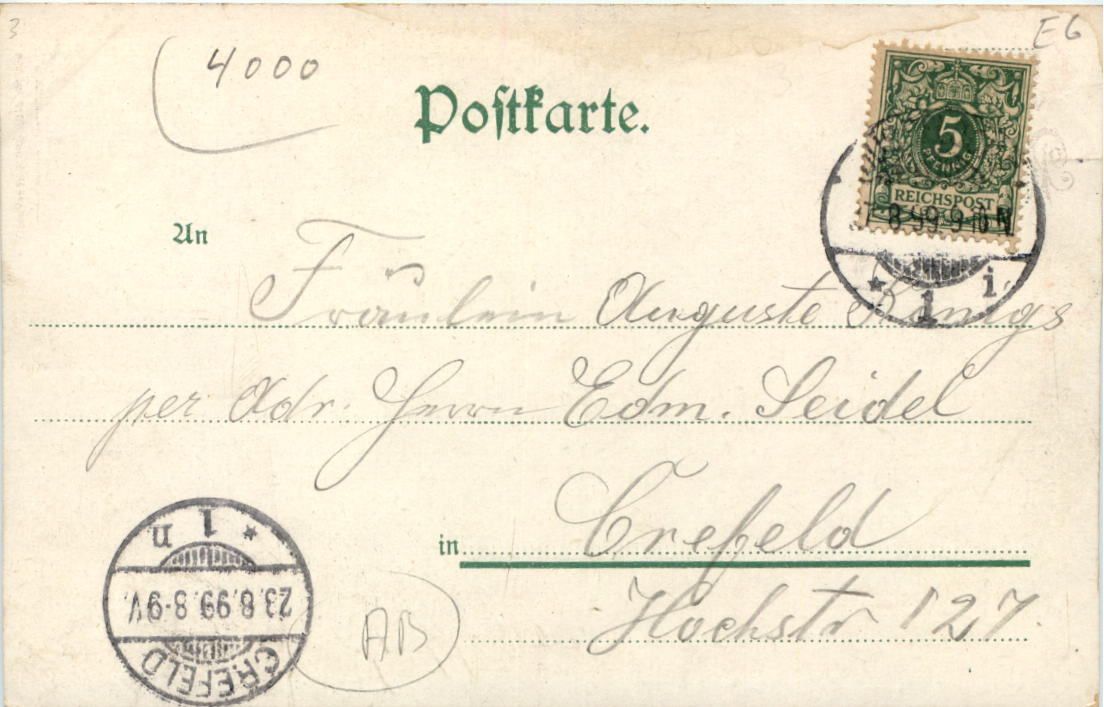 3
4000
E6
Postkarte.
5
PFENNIG
REICHSPOST
8.99.9-10N
* 1 i
An
Fräulein Auguste Königs
per Adr. Herrn Edm. Seidel
in Crefeld
Hochstr 127
* 1 n.
23.8.99.8-9V.
CREFELD
AB